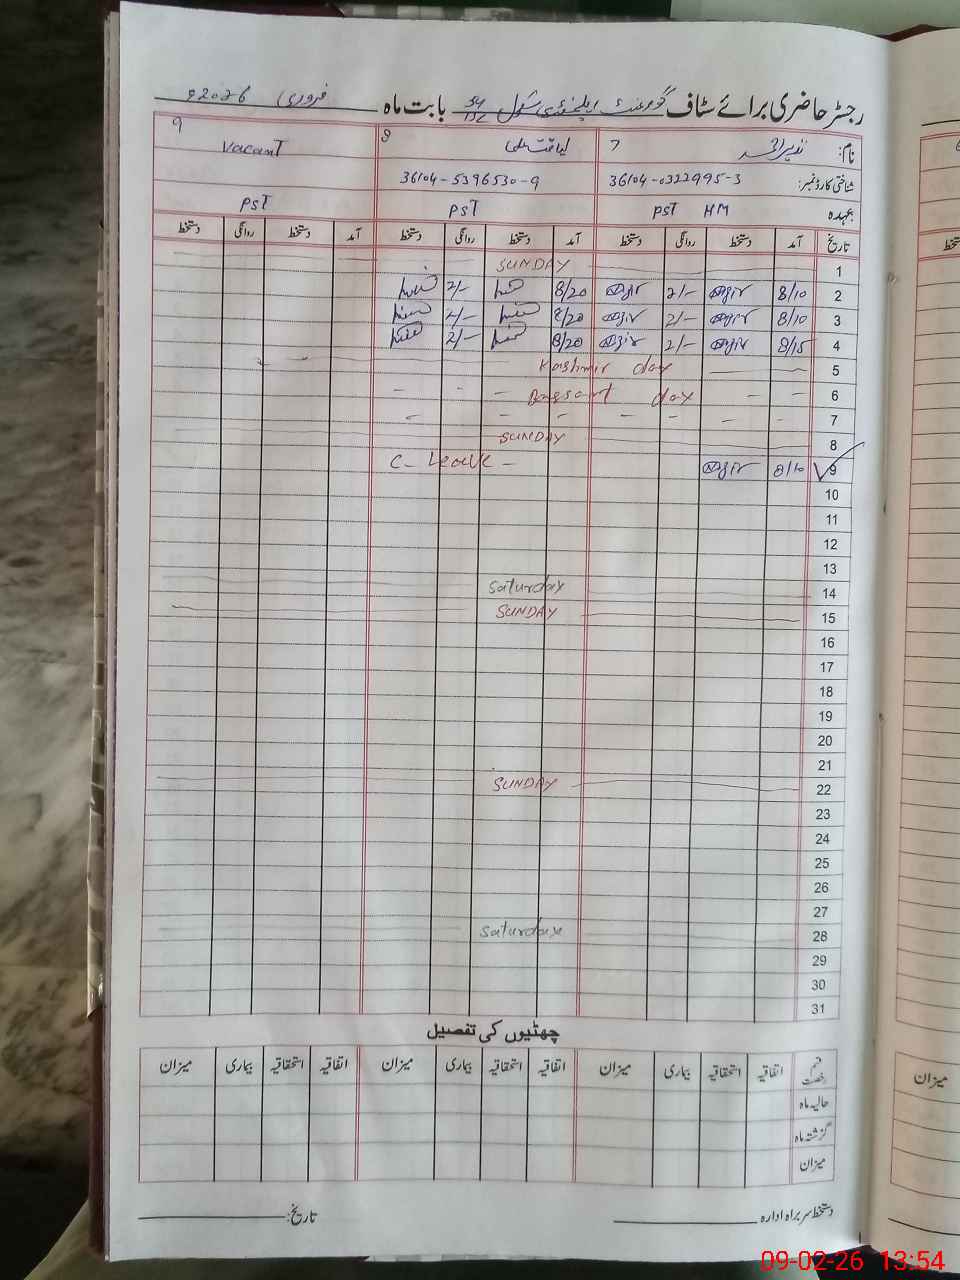 رجسٹر حاضری برائے سٹاف گورنمنٹ ایلیمنٹری سکول 54/15L بابت ماہ فروری 2026ء
نام: نذیر احمد 7 لیاقت علی 8 Vacant 9
شناختی کارڈ نمبر: 36104-0322995-3 36104-5396530-9
عہدہ PST HM PST PST
تاریخ آمد دستخط روانگی دستخط آمد دستخط روانگی دستخط آمد دستخط روانگی دستخط
1 SUNDAY
2 8/10 2/- 8/20 2/-
3 8/10 2/- 8/20 2/-
4 8/15 2/- 8/20 2/-
5 Kashmir day
6 day
7
8 SUNDAY
9 8/10 C-Leave -
10
11
12
13
14 Saturday
15 SUNDAY
16
17
18
19
20
21
22 SUNDAY
23
24
25
26
27
28 Saturday
29
30
31
چھٹیوں کی تفصیل
قسم رخصت اتفاقیہ استحقاقیہ بیماری میزان اتفاقیہ استحقاقیہ بیماری میزان اتفاقیہ استحقاقیہ بیماری میزان
حالیہ ماہ
گزشتہ ماہ
میزان
دستخط سربراہ ادارہ تاریخ:
میزان
09-02-26 13:54